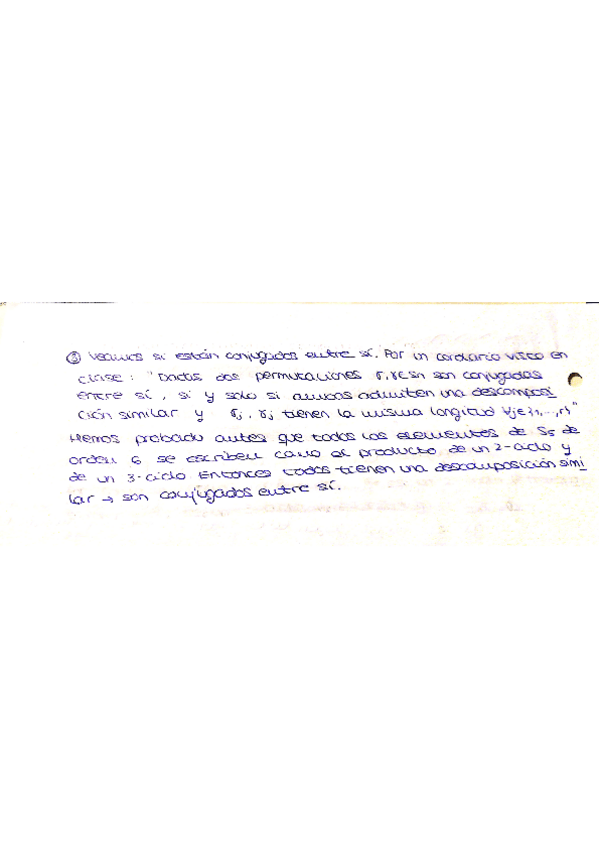 ③ Veamos si están conjugados entre sí. Por un corolario visto en
clase: "Dadas dos permutaciones σ, γ ∈ Sn son conjugadas
entre sí, si y solo si ambas admiten una descomposi
ción similar y σj, γj tienen la misma longitud ∀j∈{1,...,r}"
Hemos probado antes que todos los elementos de S5 de
orden 6 se escriben como el producto de un 2-ciclo y
de un 3-ciclo Entonces todos tienen una descomposición simi
lar → son conjugados entre sí.